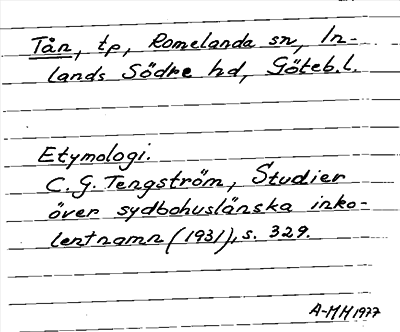 Tån, tp, Romelanda sn, In-
lands Södre hd, Göteb.l.
Etymologi.
C. G. Tengström, Studier
över sydbohuslänska inko-
lentnamn (1931), s. 329.
A-MH 1977